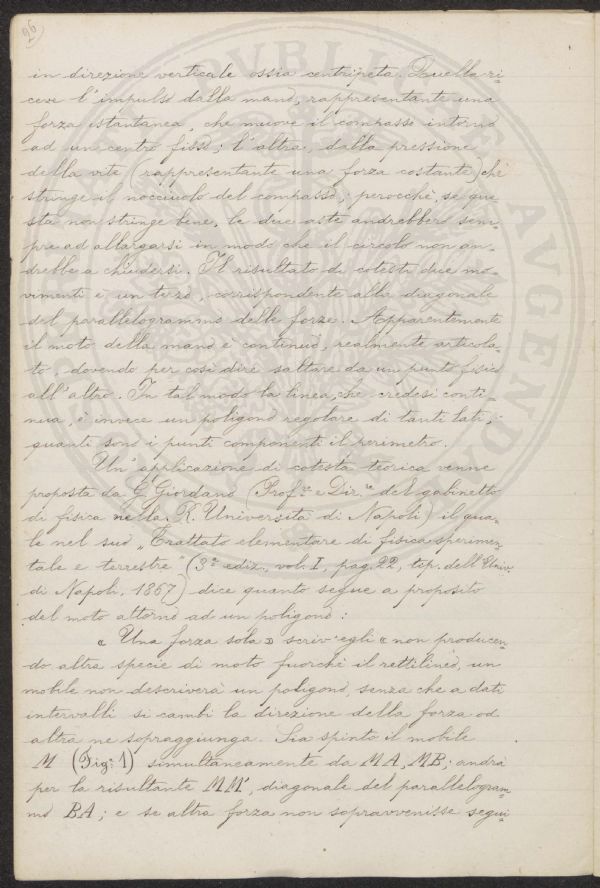 26
in direzione verticale ossia centripeta. Quella ri=
ceve l'impulso dalla mano, rappresentante una
forza istantanea, che muove il compasso intorno
ad un centro fisso; l'altra, dalla pressione
della vite (rappresentante una forza costante) che
stringe il nocciuolo del compasso; perocchè, se que=
sta non stringe bene, le due aste andrebbero sem=
pre ad allargarsi in modo che il circolo non an=
drebbe a chiudersi. Il risultato di cotesti due mo=
vimenti è un terzo, corrispondente alla diagonale
del parallelogrammo delle forze. Apparentemente
il moto della mano è continuo, realmente articola=
to, dovendo per così dire saltare da un punto fisico
all'altro. In tal modo la linea, che credesi conti=
nua, è invece un poligono regolare di tanti lati,
quanti sono i punti componenti il perimetro.
Un'applicazione di cotesta teorica venne
proposta da G. Giordano (Prof.re e Dir.re del gabinetto
di fisica nella R. Università di Napoli) il qua=
le nel suo „Trattato elementare di fisica sperimen=
tale e terrestre" (3.a ediz. vol. I, pag. 22, tip. dell'Univ.
di Napoli, 1867) dice quanto segue a proposito
del moto attorno ad un poligono:
« Una forza sola » scriv'egli « non producen=
do altra specie di moto fuorchè il rettilineo, un
mobile non descriverà un poligono, senza che a dati
intervalli si cambi la direzione della forza od
altra ne sopraggiunga. Sia spinto il mobile
M (Fig.a 1) simultaneamente da MA, MB; andrà
per la risultante MM', diagonale del parallelogram=
mo BA; e se altra forza non sopravvenisse segui=
PVBLICAE
AVGENDAE